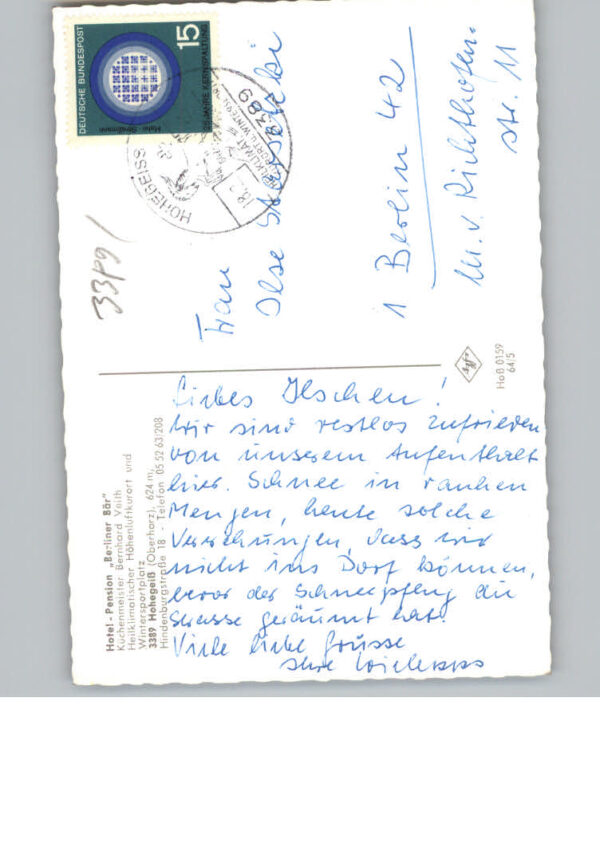 Liebes Ilschen!
Wir sind restlos zufrieden
von unserem Aufenthalt
hier. Schnee in rauhen
Mengen, heute solche
Verwehungen, dass wir
nicht ins Dorf können,
bevor der Schneepflug die
Strasse geräumt hat.
Viele liebe Grüsse
Ihre
Hotel-Pension „Berliner Bär"
Küchenmeister Bernhard Veith
Heilklimatischer Höhenluftkurort und
Wintersportplatz
3389 Hohegeiß (Oberharz), 624 m,
Hindenburgstraße 18 - Telefon 05 52 63/208
DEUTSCHE BUNDESPOST
15
JAHRE KERNSPALTUNG
3389
HOHEGEISS
Frau
Ilse
1 Berlin 42
M. v. Richthofen-
str. 11
HoB 0159
64/5